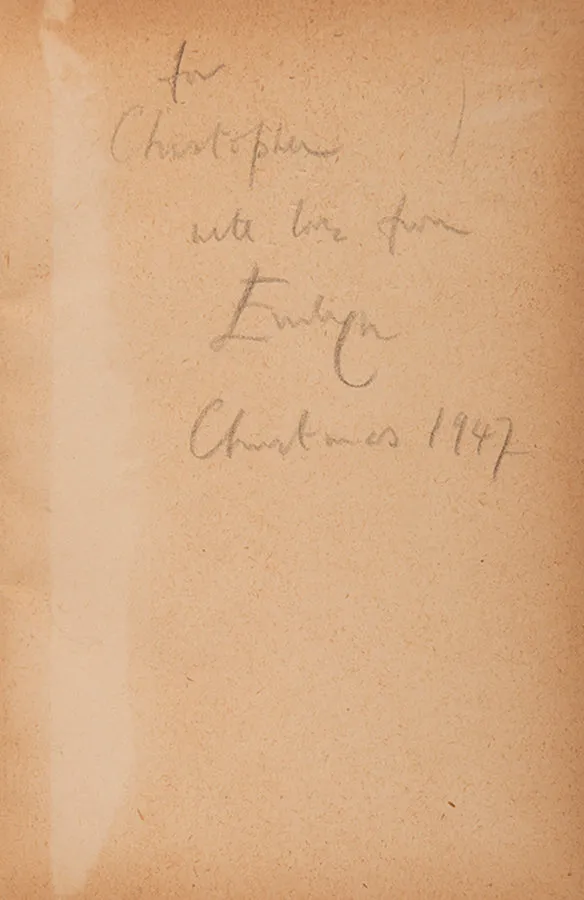 for
Christopher
with love from
Emlyn
Christmas 1947